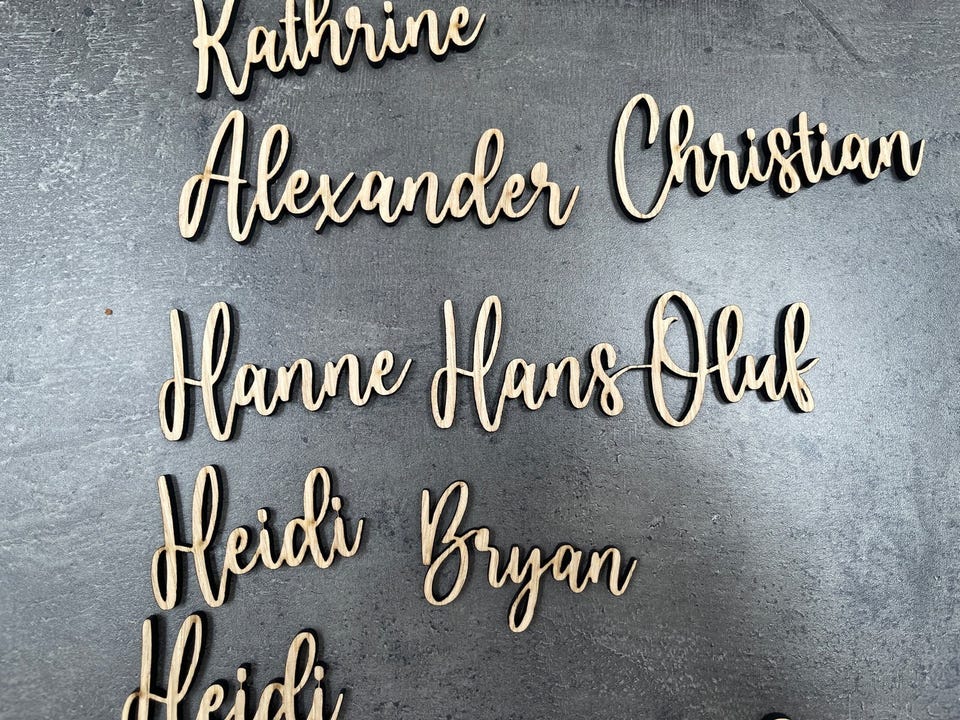 Kathrine
Alexander Christian
Hanne Hans Oluf
Heidi Bryan
Heidi